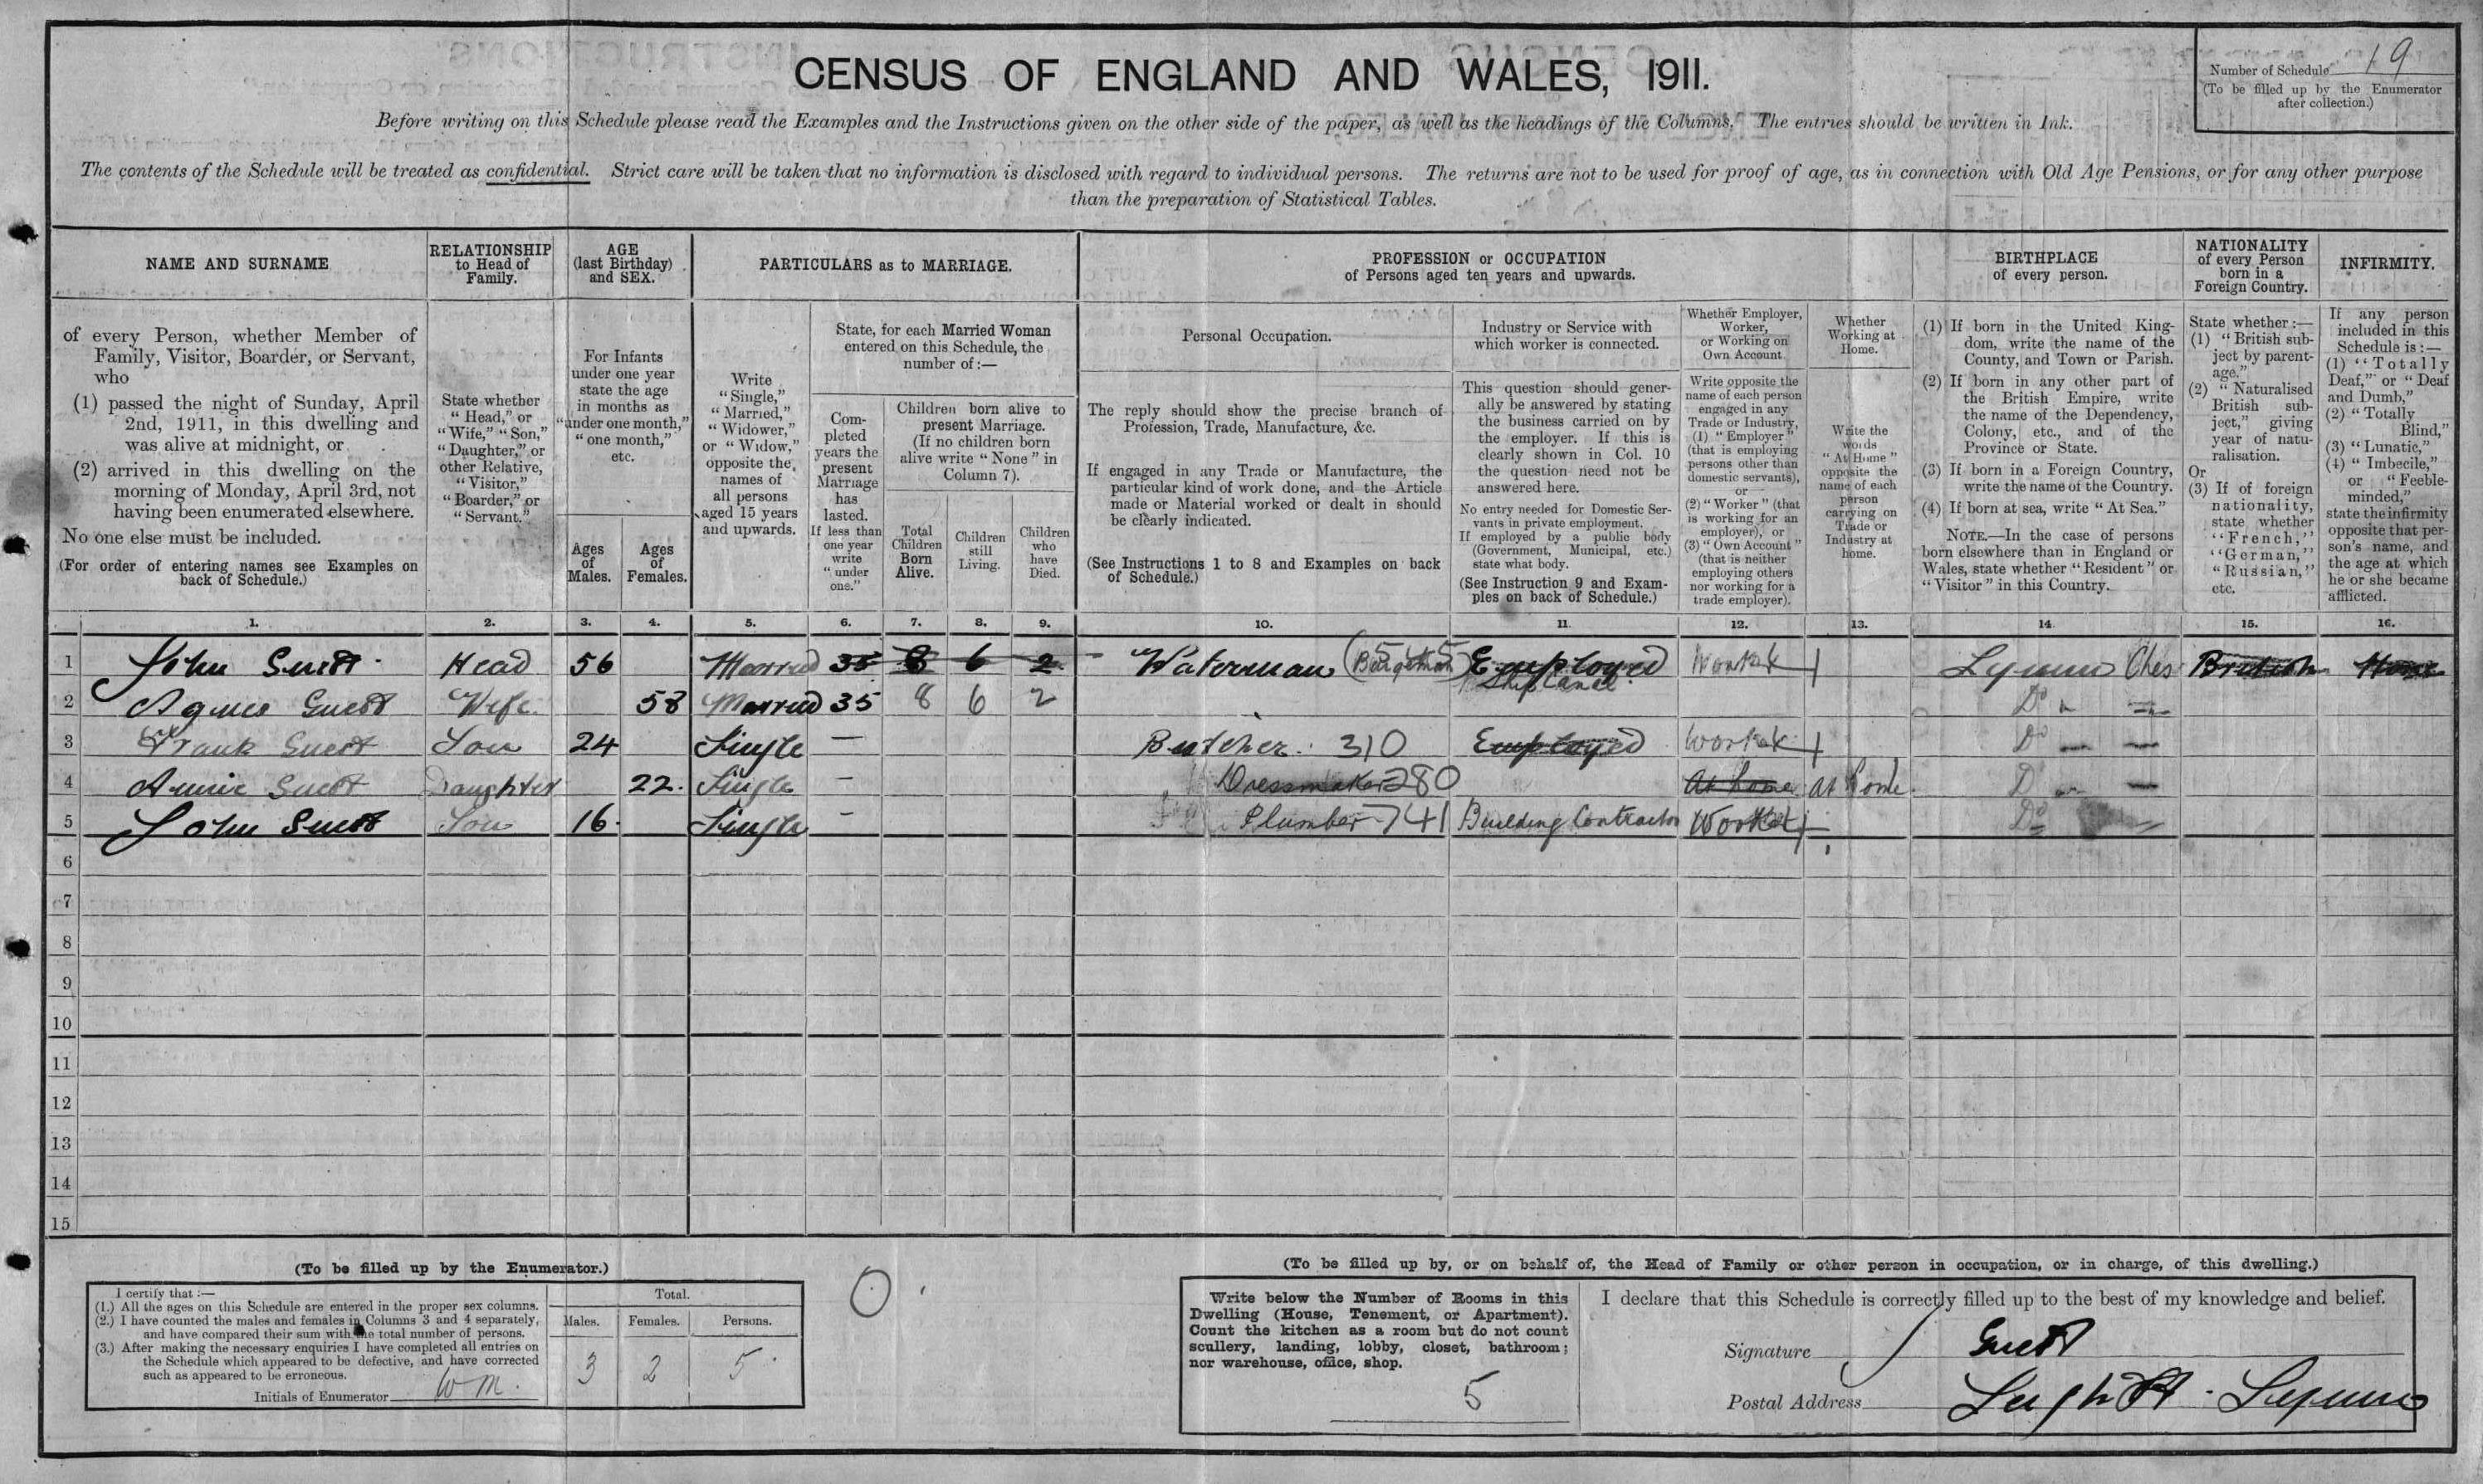 CENSUS OF ENGLAND AND WALES, 1911.
Number of Schedule 19
(To be filled up by the Enumerator
after collection.)
Before writing on this Schedule please read the Examples and the Instructions given on the other side of the paper, as well as the headings of the Columns. The entries should be written in Ink.
The contents of the Schedule will be treated as confidential. Strict care will be taken that no information is disclosed with regard to individual persons. The returns are not to be used for proof of age, as in connection with Old Age Pensions, or for any other purpose
than the preparation of Statistical Tables.
NAME AND SURNAME
of every Person, whether Member of
Family, Visitor, Boarder, or Servant,
who
(1) passed the night of Sunday, April
2nd, 1911, in this dwelling and
was alive at midnight, or
(2) arrived in this dwelling on the
morning of Monday, April 3rd, not
having been enumerated elsewhere.
No one else must be included.
(For order of entering names see Examples on
back of Schedule.)
RELATIONSHIP
to Head of
Family.
State whether
"Head," or
"Wife," "Son,"
"Daughter," or
other Relative,
"Visitor,"
"Boarder," or
"Servant."
AGE
(last Birthday)
and SEX.
For Infants
under one year
state the age
in months as
"under one month,"
"one month,"
etc.
Ages
of
Males.
Ages
of
Females.
PARTICULARS as to MARRIAGE.
Write
"Single,"
"Married,"
"Widower,"
or "Widow,"
opposite the
names of
all persons
aged 15 years
and upwards.
State, for each Married Woman
entered on this Schedule, the
number of :—
Com-
pleted
years the
present
Marriage
has
lasted.
If less than
one year
write
"under
one."
Children born alive to
present Marriage.
(If no children born
alive write "None" in
Column 7).
Total
Children
Born
Alive.
Children
still
Living.
Children
who
have
Died.
PROFESSION or OCCUPATION
of Persons aged ten years and upwards.
Personal Occupation.
The reply should show the precise branch of
Profession, Trade, Manufacture, &c.
If engaged in any Trade or Manufacture, the
particular kind of work done, and the Article
made or Material worked or dealt in should
be clearly indicated.
(See Instructions 1 to 8 and Examples on back
of Schedule.)
Industry or Service with
which worker is connected.
This question should gener-
ally be answered by stating
the business carried on by
the employer. If this is
clearly shown in Col. 10
the question need not be
answered here.
No entry needed for Domestic Ser-
vants in private employment.
If employed by a public body
(Government, Municipal, etc.)
state what body.
(See Instruction 9 and Exam-
ples on back of Schedule.)
Whether Employer,
Worker,
or Working on
Own Account.
Write opposite the
name of each person
engaged in any
Trade or Industry,
(1) "Employer"
(that is employing
persons other than
domestic servants),
or
(2) "Worker" (that
is working for an
employer), or
(3) "Own Account"
(that is neither
employing others
nor working for a
trade employer).
Whether
Working at
Home.
Write the
words
"At Home"
opposite the
name of each
person
carrying on
Trade or
Industry at
home.
BIRTHPLACE
of every person.
(1) If born in the United King-
dom, write the name of the
County, and Town or Parish.
(2) If born in any other part of
the British Empire, write
the name of the Dependency,
Colony, etc., and of the
Province or State.
(3) If born in a Foreign Country,
write the name of the Country.
(4) If born at sea, write "At Sea."
NOTE.—In the case of persons
born elsewhere than in England or
Wales, state whether "Resident" or
"Visitor" in this Country.
NATIONALITY
of every Person
born in a
Foreign Country.
State whether :—
(1) "British sub-
ject by parent-
age."
(2) "Naturalised
British sub-
ject," giving
year of natu-
ralisation.
Or
(3) If of foreign
nationality,
state whether
"French,"
"German,"
"Russian,"
etc.
INFIRMITY.
If any person
included in this
Schedule is :—
(1) "Totally
Deaf," or "Deaf
and Dumb,"
(2) "Totally
Blind,"
(3) "Lunatic,"
(4) "Imbecile,"
or "Feeble-
minded,"
state the infirmity
opposite that per-
son's name, and
the age at which
he or she became
afflicted.
1. 2. 3. 4. 5. 6. 7. 8. 9. 10. 11. 12. 13. 14. 15. 16.
1 John Guest Head 56 Married 35 8 6 2 Waterman (Bargeman) 545 Employed Ship Canal Worker Lymm Ches British None
2 Agnes Guest Wife 58 Married 35 8 6 2 Do
3 Frank Guest Son 24 Single — Butcher. 310 Employed Worker Do — —
4 Annie Guest Daughter 22. Single — Dressmaker 280 At home At home. Do —
5 John Guest Son 16 Single — Plumber 741 Building Contractor Worker Do
6
7
8
9
10
11
12
13
14
15
(To be filled up by the Enumerator.)
I certify that :—
(1.) All the ages on this Schedule are entered in the proper sex columns.
(2.) I have counted the males and females in Columns 3 and 4 separately,
and have compared their sum with the total number of persons.
(3.) After making the necessary enquiries I have completed all entries on
the Schedule which appeared to be defective, and have corrected
such as appeared to be erroneous.
Initials of Enumerator W M.
Total.
Males. Females. Persons.
3 2 5
0
(To be filled up by, or on behalf of, the Head of Family or other person in occupation, or in charge, of this dwelling.)
Write below the Number of Rooms in this
Dwelling (House, Tenement, or Apartment).
Count the kitchen as a room but do not count
scullery, landing, lobby, closet, bathroom;
nor warehouse, office, shop.
5
I declare that this Schedule is correctly filled up to the best of my knowledge and belief.
Signature J Guest
Postal Address Leigh St. Lymm